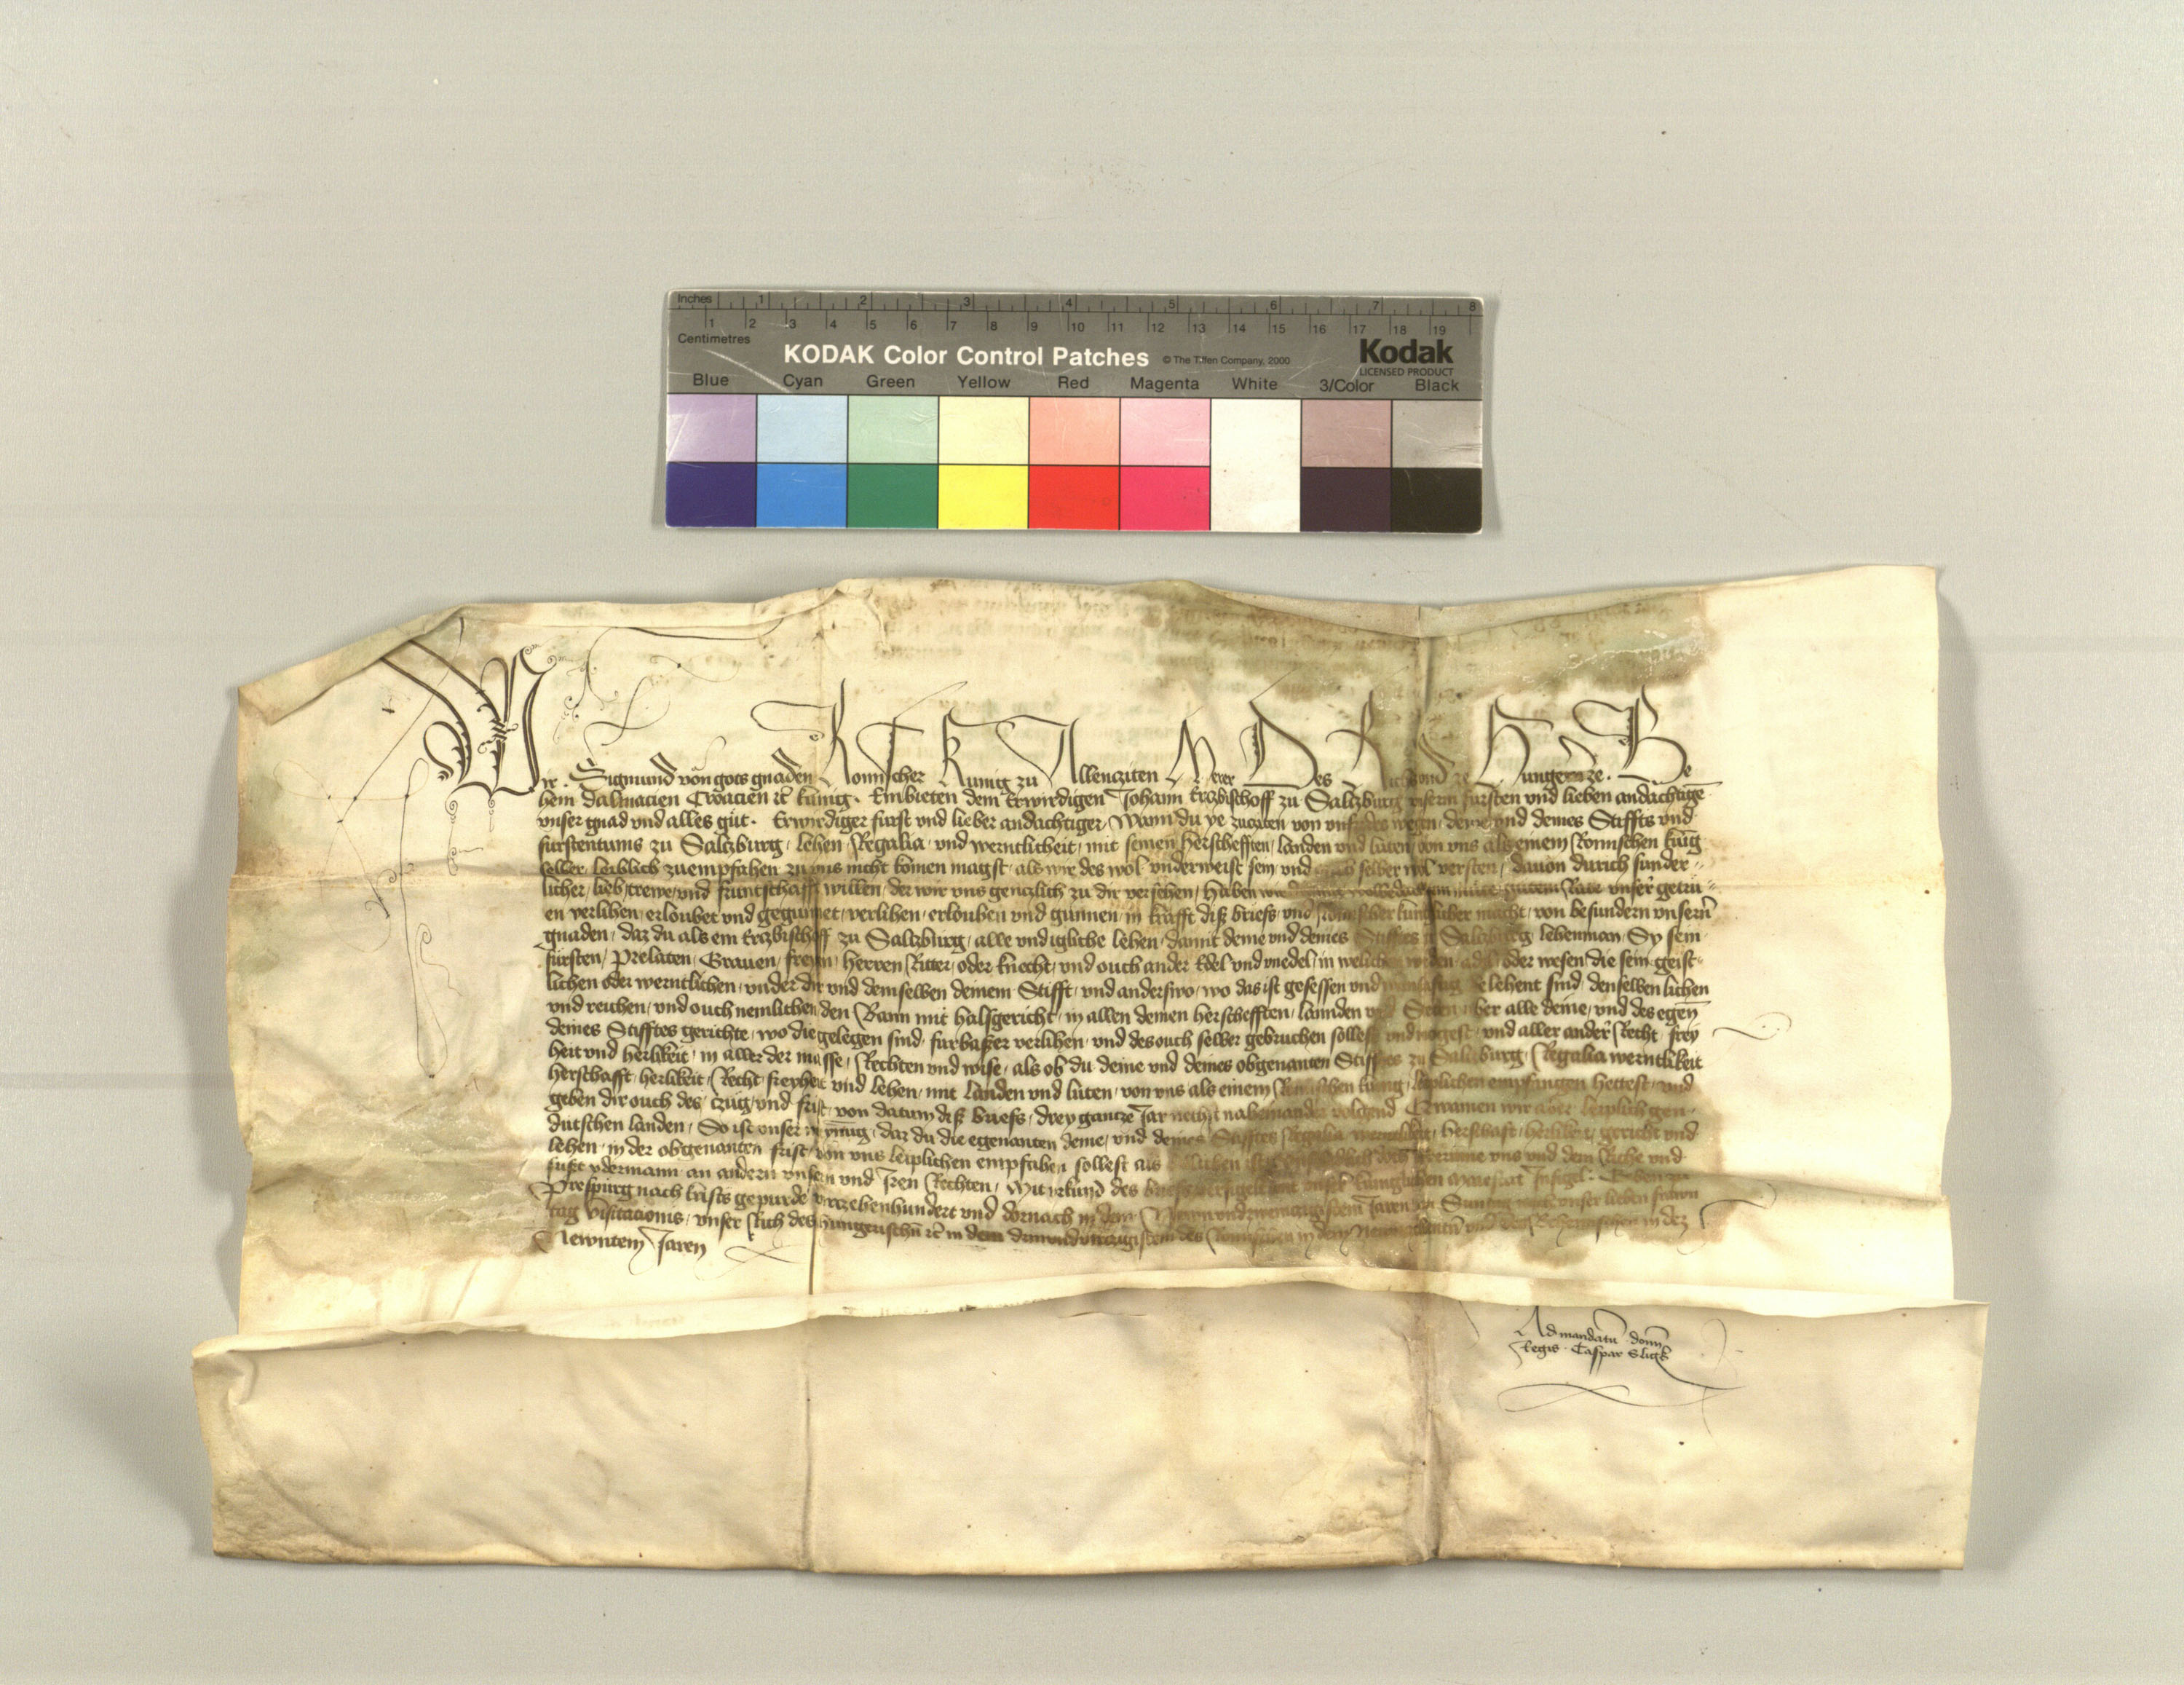 Inches 1 2 3 4 5 6 7 8
1 2 3 4 5 6 7 8 9 10 11 12 13 14 15 16 17 18 19
Centimetres
KODAK Color Control Patches © The Tiffen Company, 2000 Kodak
LICENSED PRODUCT
Blue Cyan Green Yellow Red Magenta White 3/Color Black
Wir Sigmund von gots gnaden Romischer Kunig zu Allencziten Merer Des Richs und ze Hungern ze Be
hem Dalmacien Croacien etc kunig. Embieten dem Erwirdigen Johann Erczbischoff zu Salczburg unserm fursten und lieben andachtigē
unser gnad und alles gut. Erwirdiger furst und lieber andachtiger, Wann du ye zuczeiten von wegen, deine und deines Stiffts und
furstentums zu Salczburg, lehen, Regalia, und werntlicheit, mit seinen herschefften, landen und luten von uns als einem Romischen kunig
selber, leiblich zuempfahen zu uns nicht komen magst, als wir des wol underweist sein, und selber wol versten, davon durich sunder
licher, lieb, trewe, und fruntschafft willen, der wir uns genczlich zu dir versehen, haben gutem Rate unser getru
en verlihen, erloubet und gegunnet, verlihen, erlouben und gunnen, in krafft diß briefs, und Romischer kuniglicher macht, von besundern unsern
gnaden, daz du als ein Erczbischoff zu Salczburg, alle und igliche lehen, damit deine und deines Stifftes zu Salczburg lehenman, Sy sein
fursten, Prelaten, Graven, freyen, herren, Ritter, oder knecht, und ouch ander Edel und unedel, in welichen adel oder wesen die sein, geist
lichen oder werntlichen, under dir und demselben deinem Stifft, und anderswo, wo das ist gesessen und belehent sind, denselben lichen
und reichen, und ouch nemlichen den Bann mit halsgericht, in allen deinen herschefften, lannden und uber alle deine, und des egen
deines Stifftes gerichte, wo die gelegen sind, furbaßer verlihen, und des ouch selber gebruchen sollest und mogest, und aller ander Recht, frey
heit und herlikeit, in aller der masse, Rechten und wise, als ob du deine und deines obgenanten Stifftes zu Salczburg, Regalia werntlikeit
herschafft, herlikeit, Recht, freyheit und lehen, mit landen und luten, von uns als einem Romischen kunig, leiplichen empfangen hettest, und
geben dir ouch des, czug, und frist, von datum diß briefs, drey gantze Jar nechst nacheinander volgend Qwamen wir aber leiplich gen
dutschen landen, So ist unser meynūg, daz du die egenanten deine, und deines Stifftes Regalia werntlikeit, herschaft, herlikeit, gericht und
lehen, in der obgenanten frist, von uns leiplichen empfahen sollest als uns und dem Riche und
sust ydermann an andern unsern und Iren Rechten, Mit urkund des briefs versigelt mit unser kuniglichen Maiestat Insigel. Geben zu
Prespurg nach Crists gepurde vierczehenhundert und dornach in dem Newnundzweinczigistem Jaren Suntag nach unser lieben frawn
tag Visitacionis, unser Rich des hungerischen etc in dem des Romischen in dem und des Behemischen in dez
Newnten Jaren
Ad mandatū domī
Regis Caspar Sligk